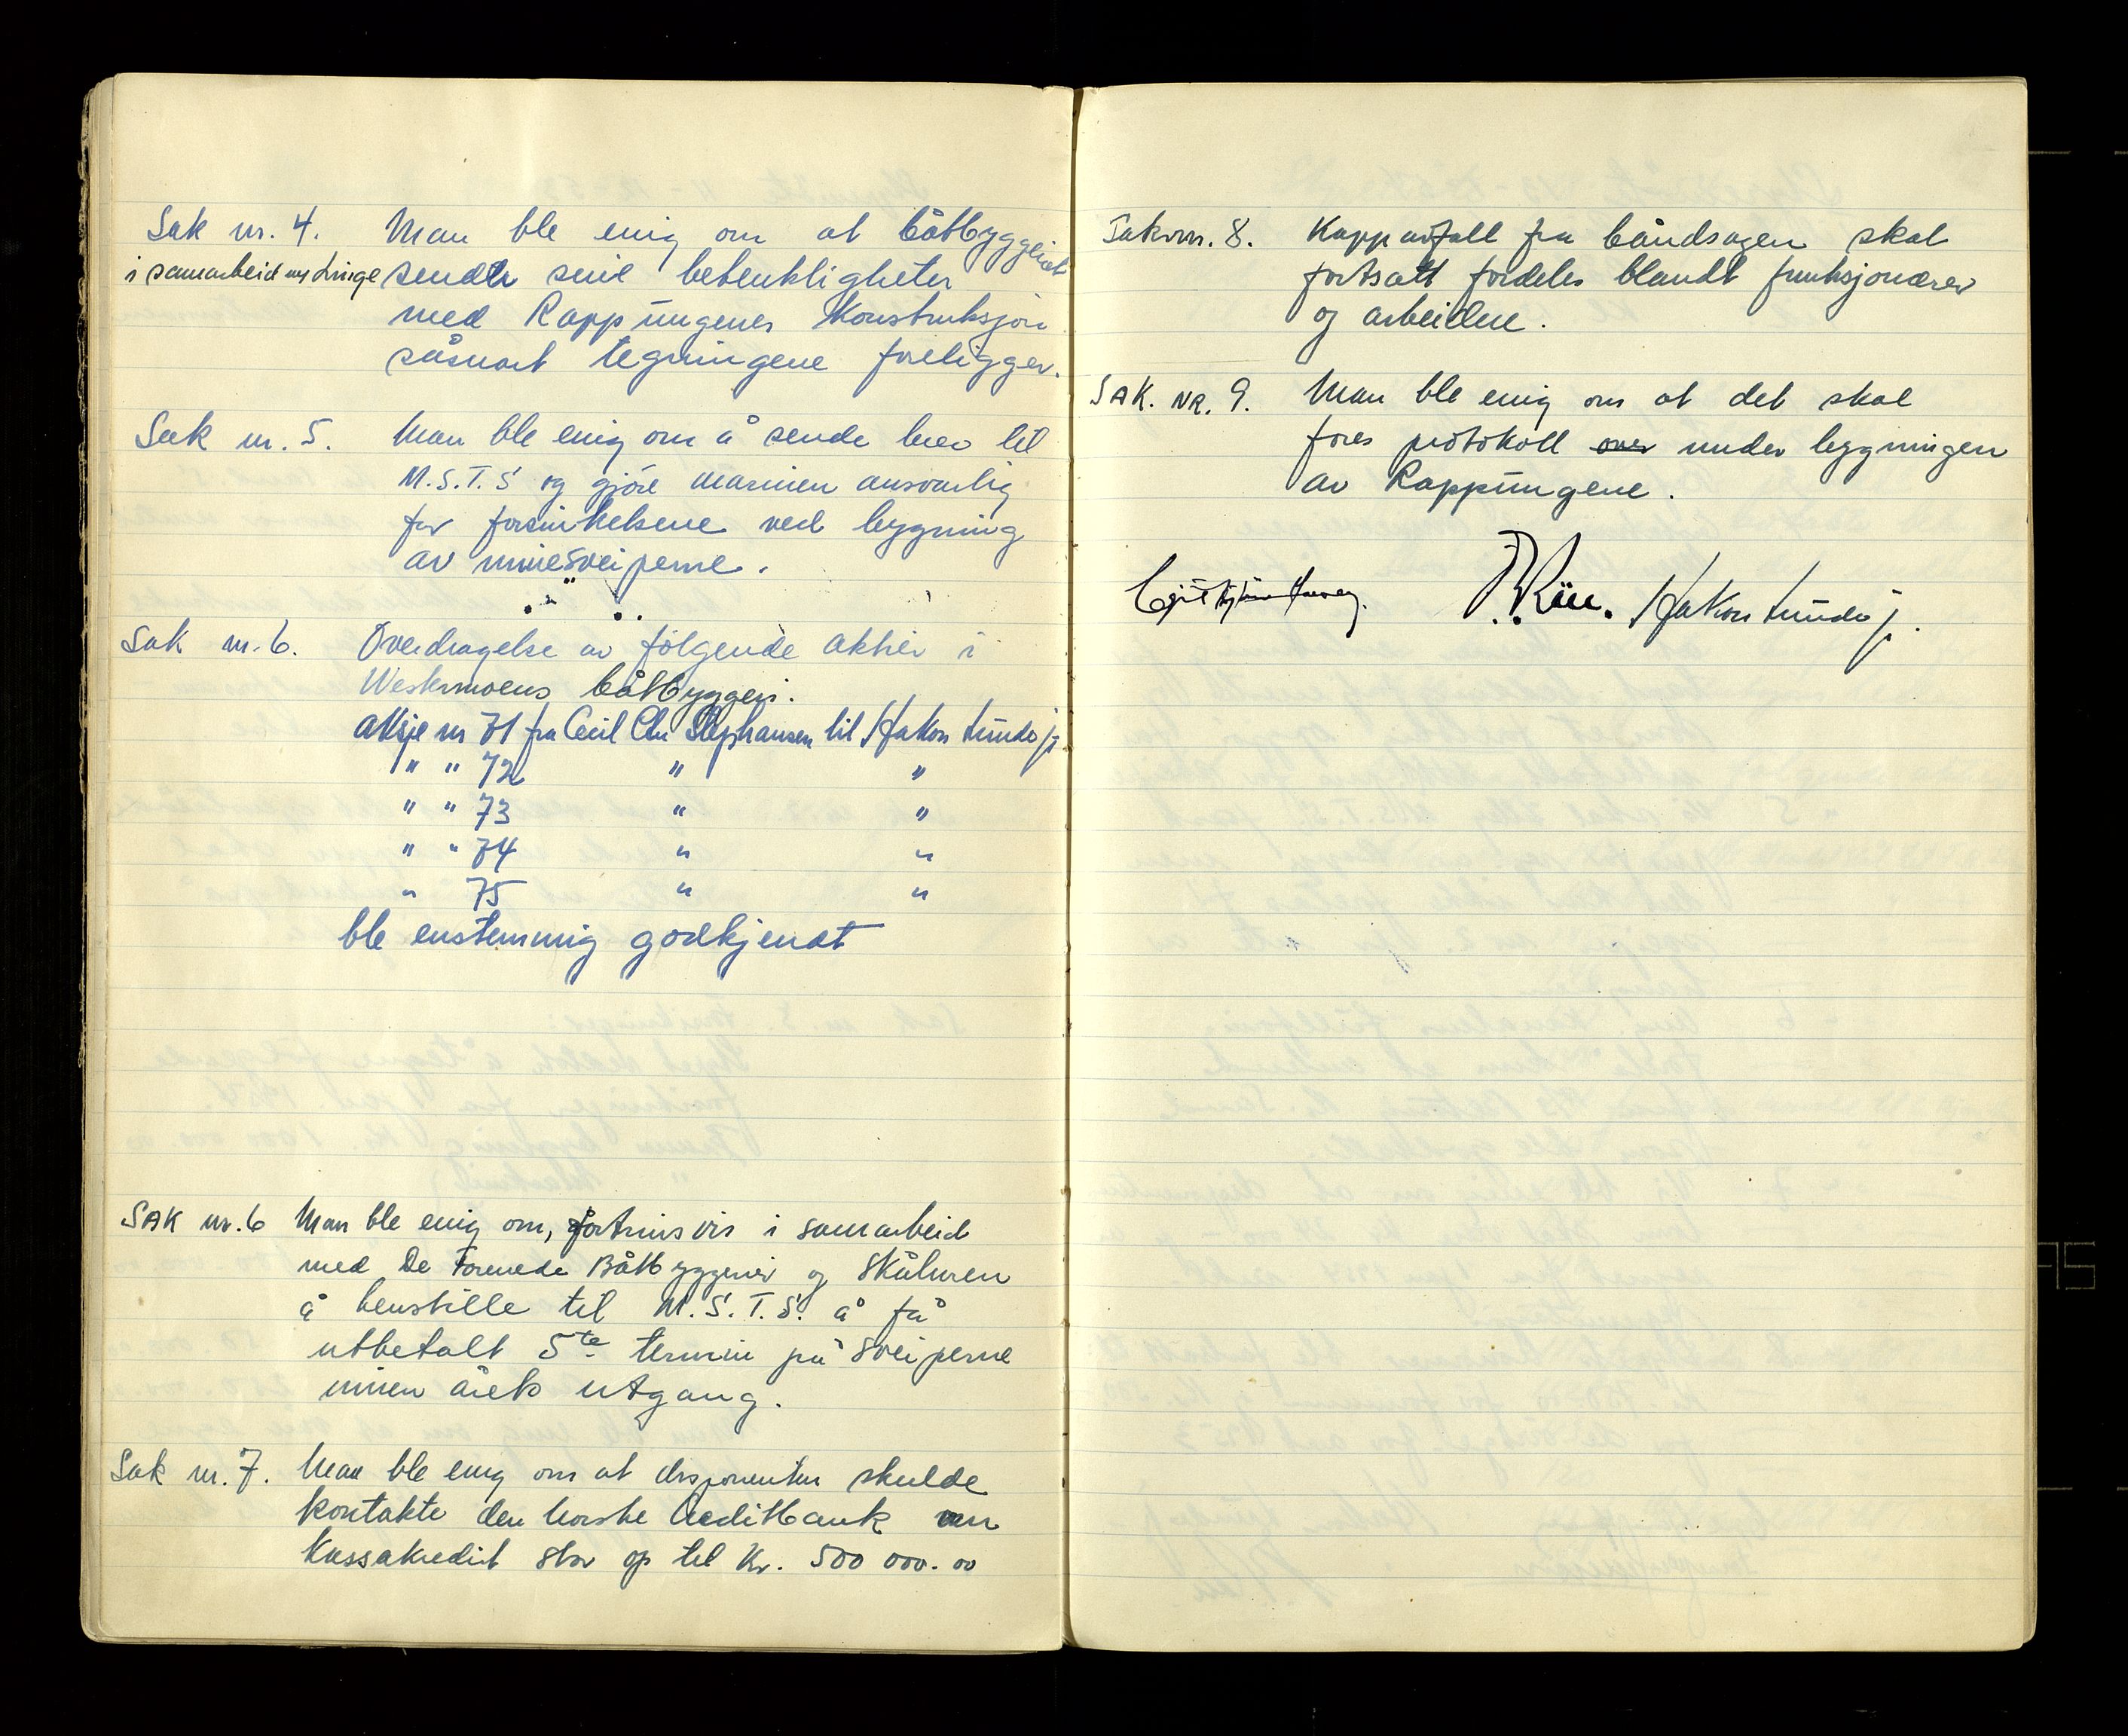 Sak nr. 4. Man ble enig om at båtbyggeriet
i samarbeid m/ Linge sender sine betenkligheter
med Rapp ungenes Konstruksjon
såsnart tegningene foreligger.
Sak nr. 5. Man ble enig om å sende brev til
M.S.T.S og gjöre marinen ansvarlig
for forsinkelsene ved bygning
av minesveiperne.
Sak nr. 6. Overdragelse av følgende aktier i
Westermoens båtbyggeri.
Aksje nr 71 fra Cecil Chr Stephansen til Hakon Lunde jr
" " 72 " "
" " 73 " "
" " 74 " "
" 75 " "
ble enstemmig godkjendt
SAK nr. 6 Man ble enig om, fortrinsvis i samarbeid
med De Forenede Båtbyggerier og Skåluren
å henstille til M.S.T.S. å få
utbetalt 5te termin på sveiperne
innen årets utgang.
Sak nr. 7. Man ble enig om at disponenten skulde
kontakte den norske Creditbank om
Kassakredit stor op til Kr. 500 000.00
Sak nr. 8. Kappavfall fra båndsagen skal
fortsatt fordeles blandt funksjonærer
og arbeidere.
SAK. NR. 9. Man ble enig om at det skal
føres protokoll over under bygningen
av Rappungene.
Hakon Lunde jr.